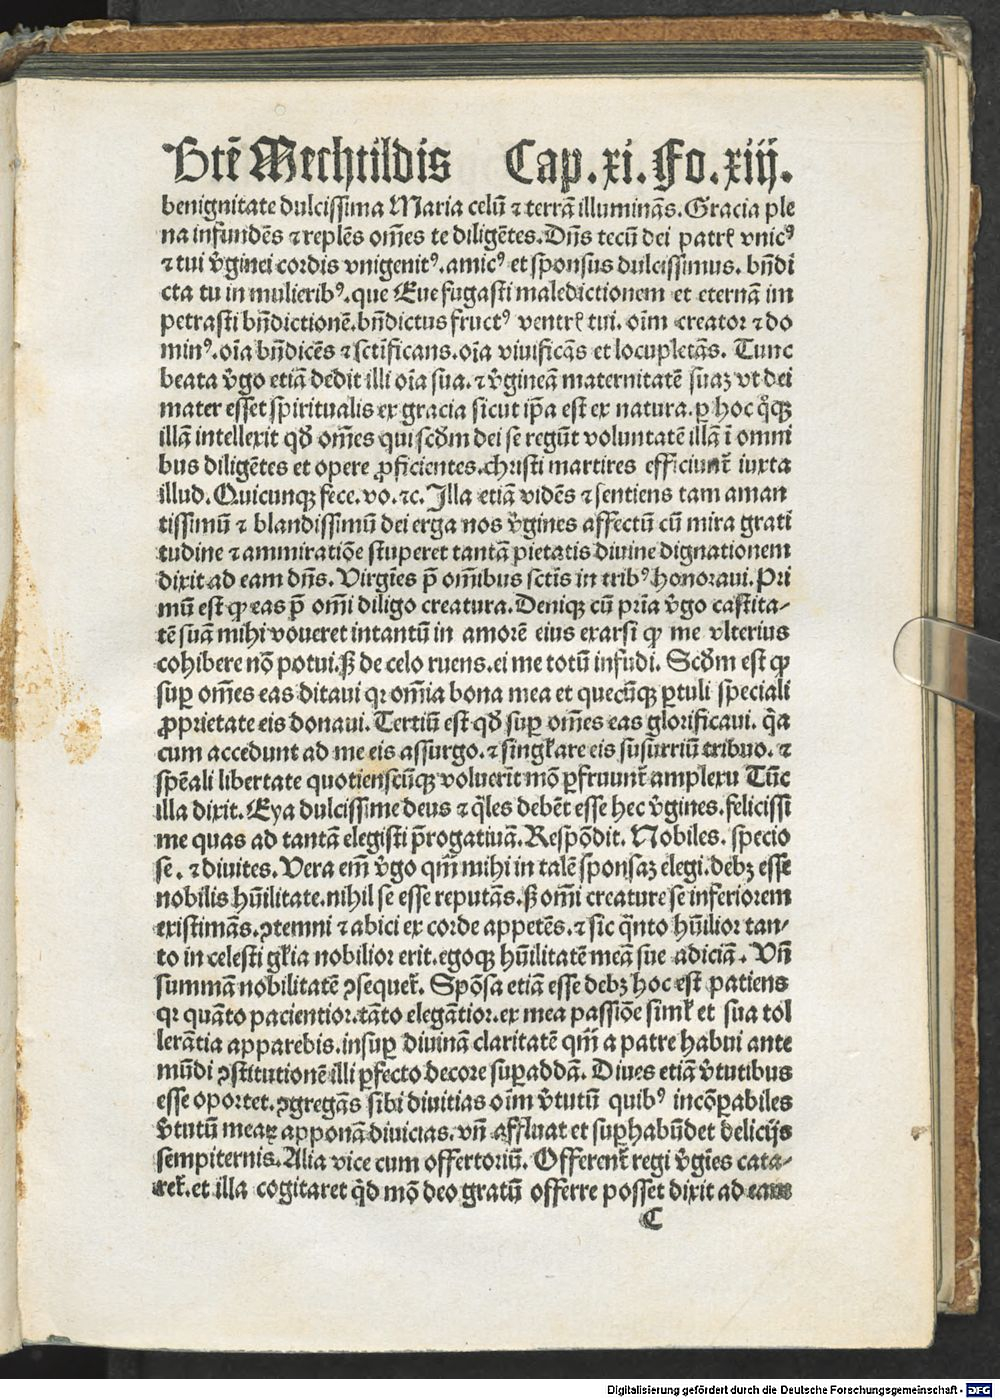 Btē Mechtildis Cap.xi.Fo.xiij.
benignitate dulcissima Maria celū ⁊ terrā illuminās. Gracia ple
na infundēs ⁊ replēs om̄es te diligētes. Dn̄s tecū dei patrꝭ vnicꝰ
⁊ tui v̄ginei cordis vnigenitꝰ. amicꝰ et sponsus dulcissimus. bn̄di
cta tu in mulieribꝰ. que Eue fugasti maledictionem et eternā im
petrasti bn̄dictionē. bn̄dictus fructꝰ ventrꝭ tui. oīm creator ⁊ do
minꝰ. oīa bn̄dicēs ⁊ sctīficans. oīa viuificās et locupletās. Tunc
beata v̄go etiā dedit illi oīa sua. ⁊ v̄gineā maternitatē suaꝫ vt dei
mater esset spiritualis ex gracia sicut ip̄a est ex natura. ꝑ hoc qͦqꝫ
illā intellexit qđ om̄es qui scđm dei se regūt voluntatē illā ī omni
bus diligētes et opere ꝓficientes. christi martires efficiunt̄ iuxta
illud. Quicunqꝫ fece. vo. ⁊c. Illa etiā vidēs ⁊ sentiens tam aman
tissimū ⁊ blandissimū dei erga nos v̄gines affectū cū mira grati
tudine ⁊ ammiratiōe stuperet tantā pietatis diuine dignationem
dixit ad eam dn̄s. Virgīes p̄ om̄ibus sctīs in tribꝰ honoraui. Pri
mū est ꝙ eas p̄ om̄i diligo creatura. Deniqꝫ cū prīa v̄go castita-
tē suā mihi voueret intantū in amorē eius exarsi ꝙ me vlterius
cohibere nō potui. ꝭ de celo ruens. ei me totū infudi. Scđm est ꝙ
suꝑ om̄es eas ditaui qꝛ om̄ia bona mea et quecūqꝫ ꝑtuli speciali
ꝓprietate eis donaui. Tertiū est qđ suꝑ om̄es eas glorificaui. q̄a
cum accedunt ad me eis assurgo. ⁊ singlare eis susurriū tribuo. ⁊
spēali libertate quotienscūqꝫ voluerīt mō ꝑfruunt̄ amplexu Tūc
illa dixit. Eya dulcissime deus ⁊ q̄les debēt esse hec v̄gines. felicissi
me quas ad tantā elegisti p̄rogatiuā. Respōdit. Nobiles. specio
se. ⁊ diuites. Vera em̄ v̄go qm̄ mihi in talē sponsaꝫ elegi. debꝫ esse
nobilis hūilitate. nihil se esse reputās. ꝭ om̄i creature se inferiorem
existimās. ꝯtemni ⁊ abici ex corde appetēs. ⁊ sic q̄nto hūilior tan-
to in celesti gl̄ia nobilior erit. egoqꝫ hūilitatē meā sue adiciā. Vn̄
summā nobilitatē ꝯsequet̄. Spōsa etiā esse debꝫ hoc est patiens
qꝛ quāto pacientior. tāto elegātior. ex mea passiōe siml̄ et sua tol
lerātia apparebis. insuꝑ diuinā claritatē qm̄ a patre habui ante
mūdi ꝯstitutionē illi ꝑfecto decore suꝑaddā. Diues etiā v̄tutibus
esse oportet. ꝯgregās sibi diuitias oīm v̄tutū quibꝰ incōꝑabiles
v̄tutū meaꝝ apponā diuicias. vn̄ affluat et suꝑhabūdet delicijs
sempiternis. Alia vice cum offertoriū. Offerent̄ regi v̄gīes cata-
ret̄. et illa cogitaret q̄d mō deo gratū offerre posset dixit ad eam
C
Digitalisierung gefördert durch die Deutsche Forschungsgemeinschaft - DFG